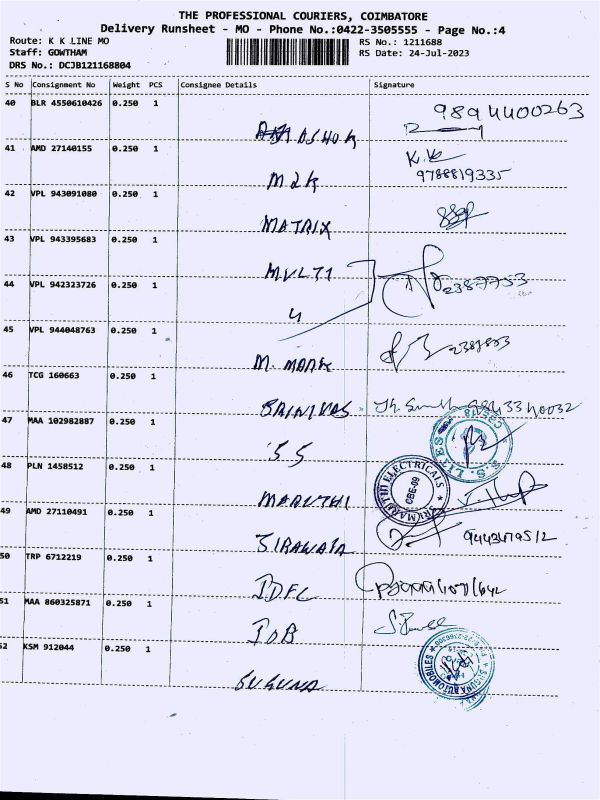 THE PROFESSIONAL COURIERS, COIMBATORE
Delivery Runsheet - MO - Phone No.:0422-3505555 - Page No.:4
Route: K K LINE MO
RS No.: 1211688
Staff: GOWTHAM
RS Date: 24-Jul-2023
DRS No.: DCJB121168804
S No Consignment No Weight PCS Consignee Details Signature
40 BLR 4550610426 0.250 1
9894400263
ASHOK
41 AMD 27140155 0.250 1
9788819335
M2K
42 VPL 943091080 0.250 1
MATRIX
43 VPL 943395683 0.250 1
MULTI
44 VPL 942323726 0.250 1
2387753
4
45 VPL 944048763 0.250 1
M. MARK
46 TCG 160663 0.250 1
SRINIVAS
47 MAA 102982887 0.250 1
S.S. LITES
S S
48 PLN 1458512 0.250 1
SRI MARUTHI ELECTRICALS
CBE-09
MARUTHI
49 AMD 27110491 0.250 1
50 TRP 6712219 0.250 1
IDFC
51 MAA 860325871 0.250 1
IOB
52 KSM 912044 0.250 1
SUGUNA AUTOMOBILES
SUGUNA